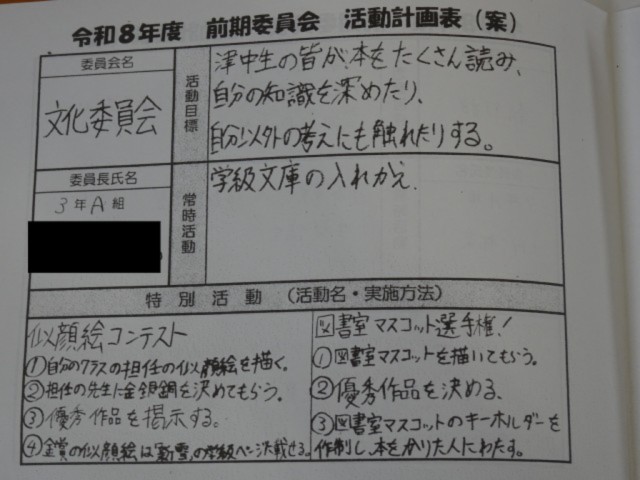 令和8年度 前期委員会 活動計画表（案）
委員会名
文化委員会
活動目標
津中生の皆が、本をたくさん読み、
自分の知識を深めたり、
自分以外の考えにも触れたりする。
委員長氏名
3年A組
常時活動
学級文庫の入れかえ
特別活動 （活動名・実施方法）
似顔絵コンテスト
①自分のクラスの担任の似顔絵を描く。
②担任の先生に金銀銅を決めてもらう。
③優秀作品を掲示する。
④金賞の似顔絵は「新雲」の学級ページに載せる。
図書室マスコット選手権！
①図書室マスコットを描いてもらう。
②優秀作品を決める、
③図書室マスコットのキーホルダーを
作制し、本をかりた人にわたす。